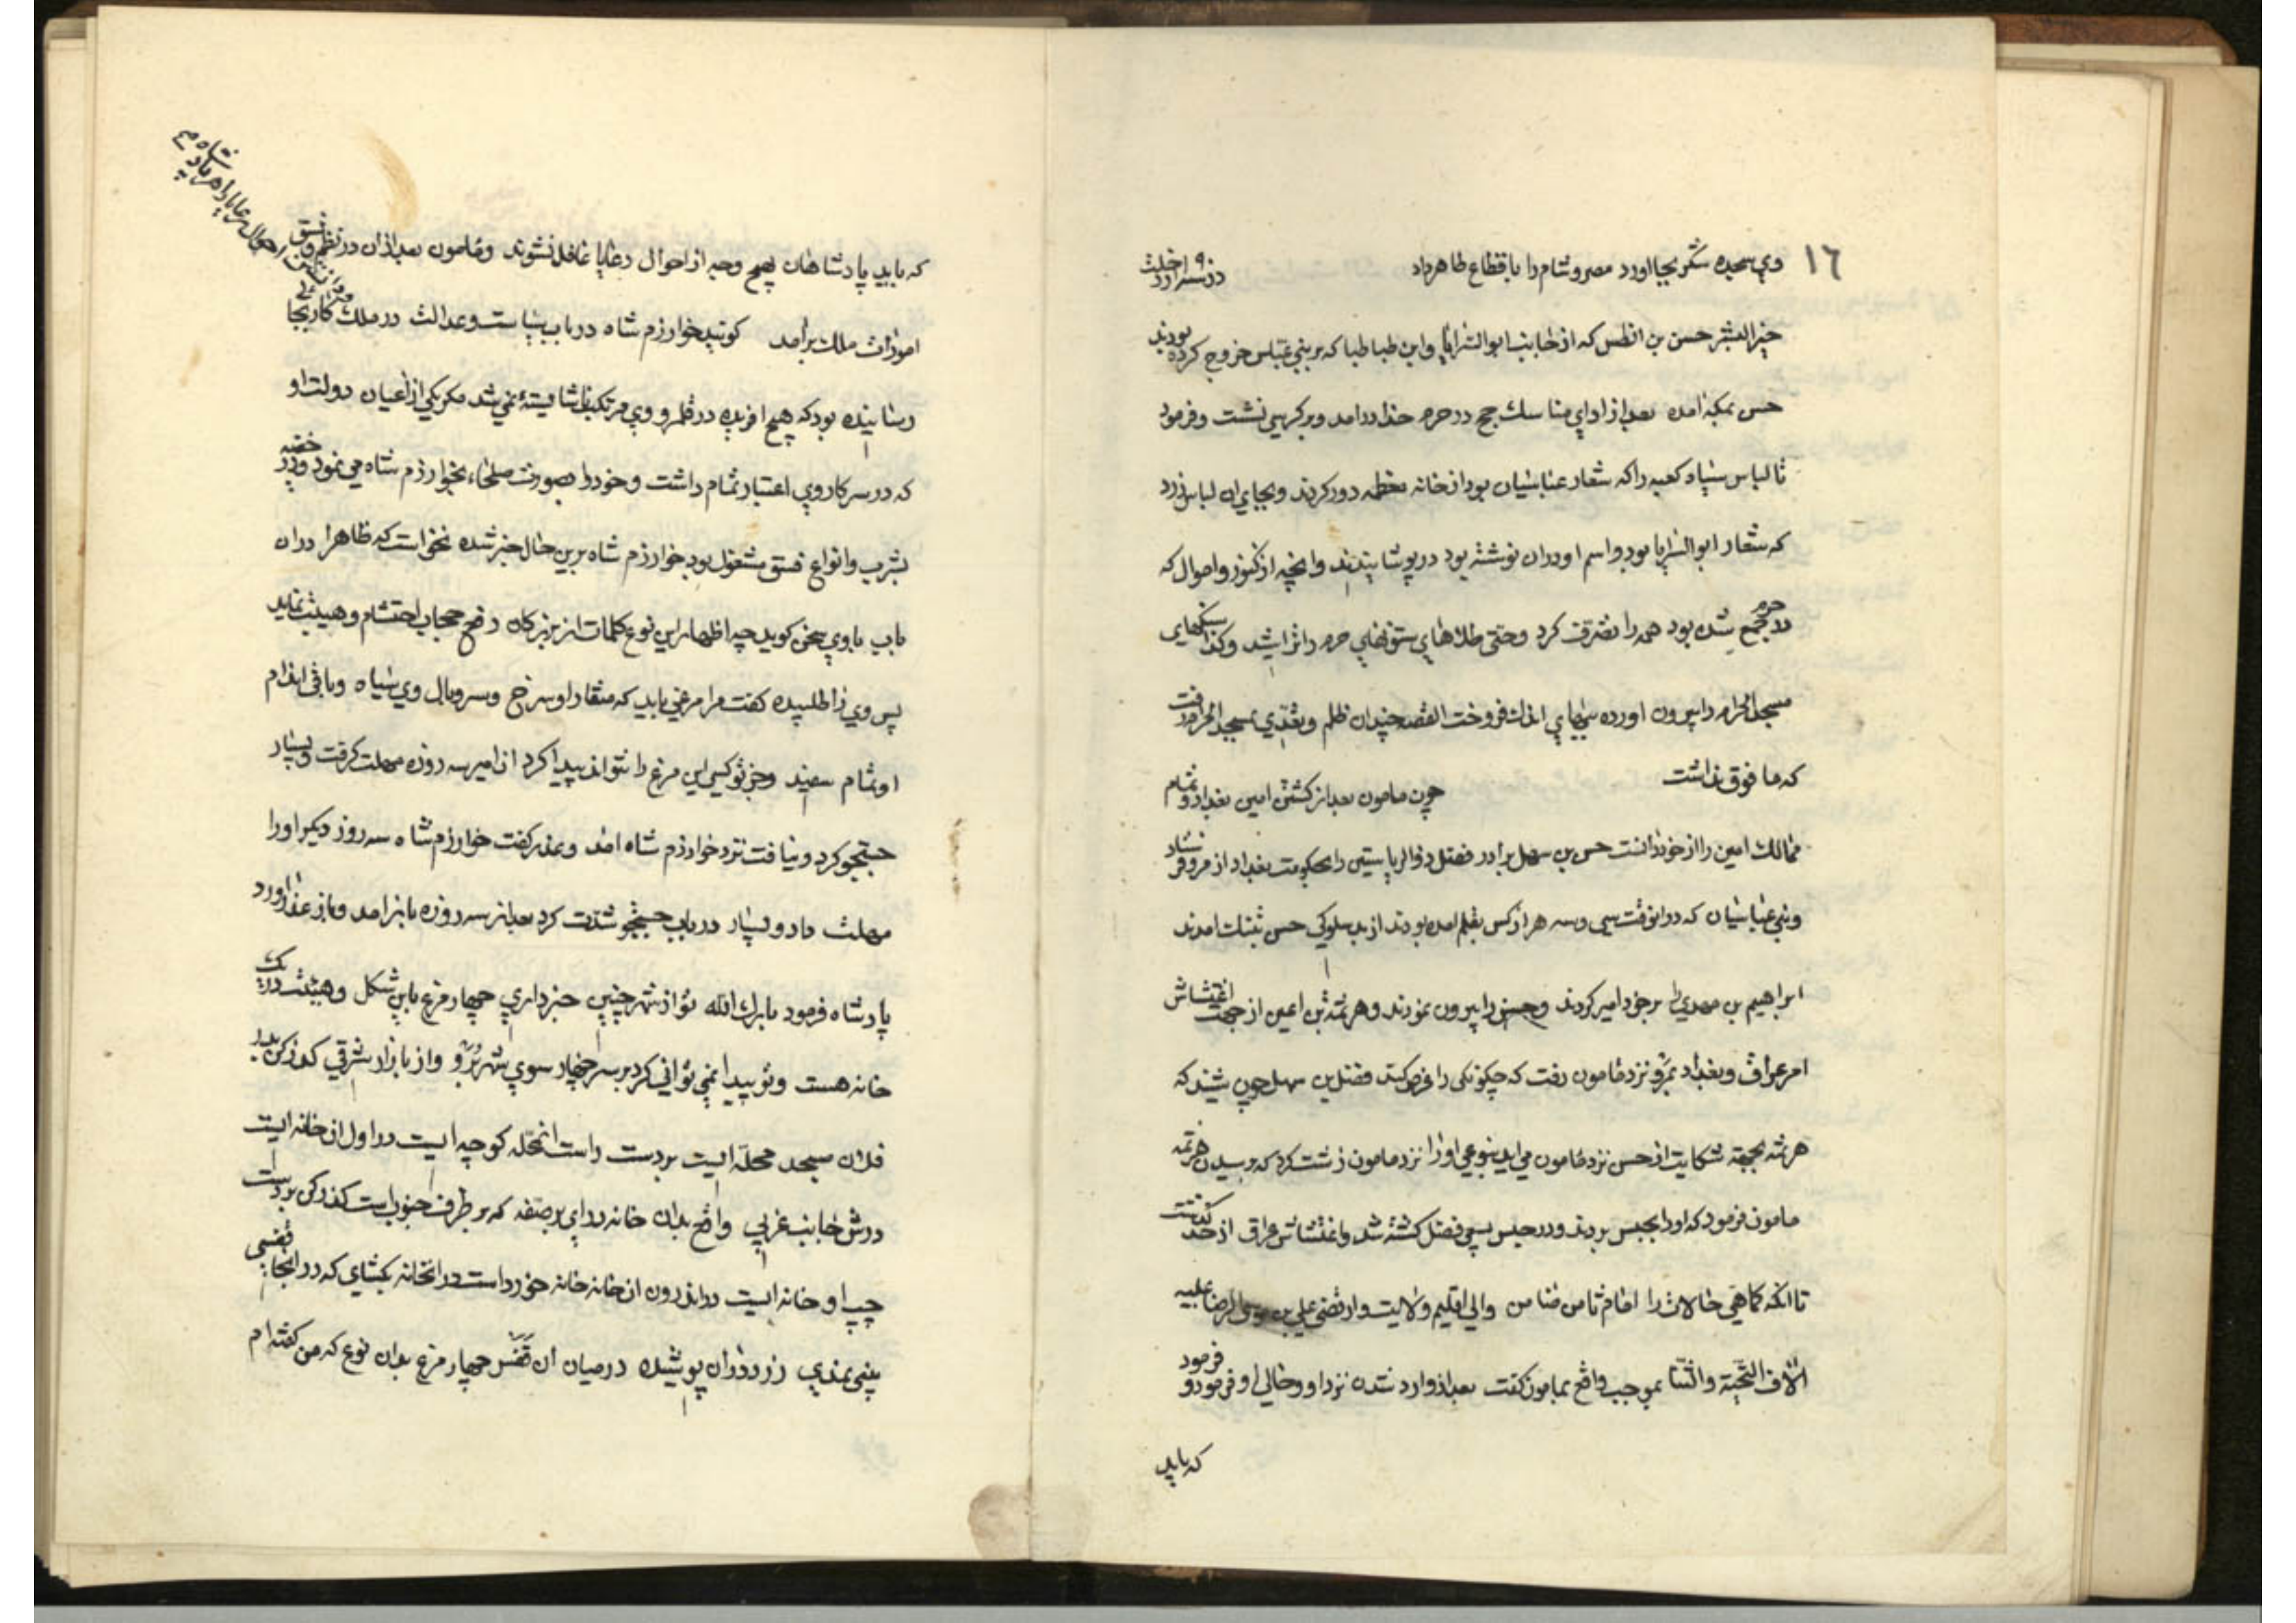 ١٦
وي سجده شكر بجا اورد مصر و شام را باقطاع طاهر داد در سنه
خير البشر حسن بن افطس كه از جانب ابو السرايا و ابن طباطبا كه بر بني عباس خروج كرده بودند
حسن بمكه امده بعد از اداي مناسك حج در حرم خدا در امد و بر كرسي نشست و فرمود
تا لباس سياه كعبه را كه شعار عباسيان بود از خانه معظمه دور كردند و بجاي ان لباس زرد
كه شعار ابو السرايا بود و اسم او در ان نوشته بود در پوشانيدند و انچه از كنوز و اموال كه
در حرم جمع شده بود همه را تصرف كرد و حتي طلاهاي ستونهاي حرم را تراشيد و كذا سنكهاي
مسجد الحرام را بيرون اورده ببهاي اندك فروخت القصه چندان ظلم و تعدي بمسجد الحرام رفت
كه ما فوق نداشت چون مامون بعد از كشتن امين بغداد و تمام
ممالك امين را از خود دانست حسن بن سهل برادر فضل ذو الرياستين را بحكومت بغداد از مرو فرستاد
و بني عباسيان كه در انوقت سي و سه هزار كس بقلم امده بودند از بد سلوكي حسن بتنك امدند
ابراهيم بن مهدي را بر خود امير كردند و حسن را بيرون نمودند و هرثمة بن اعين از جهت اغتشاش
امر عراق و بغداد بمرو نزد مامون رفت كه چكونكي را عرض كند فضل بن سهل چون شنيد كه
هرثمه بجهة شكايت از حسن نزد مامون مي ايد بنوعي او را نزد مامون زشت كرد كه برسيدن هرثمه
مامون فرمود كه او را بحبس بردند و در حبس بسعي فضل كشته شد و اغتشاش عراق از حد كذشت
تا انكه كماهي حالات را امام ثامن ضامن والي اقليم ولايت و ارتضي علي بن موسي الرضا عليه
الاف التحية و الثنا بموجب واقع بمامون كفت بعد از وارد شدن نزد او و حالي او فرمود و فرمود
كه بايد
كه بايد پادشاهان بهيچ وجه از احوال رعايا غافل نشوند و مامون بعد از ان در نظم و نسق
امورات ملك بر امد كويند خوارزم شاه در باب سياست و عدالت در ملك كار بجا
رسانيده بود كه هيچ افريده در قلمرو وي مرتكب ناشايسته نمي شد مكر يكي از اعيان دولت او
كه در سركار وي اعتبار تمام داشت و خود را بصورت صلحاء بخوارزم شاه مي نمود و در خفيه
بشرب و انواع فسق مشغول بود خوارزم شاه برين حال خبر شده نخواست كه ظاهرا در ان
باب با وي سخن كويد چه اظهار اين نوع كلمات از بزركان رفع حجاب احتشام و هيبت نمايد
پس وي را طلبيده كفت مرا مرغي بايد كه منقار او سرخ و سر و بال وي سياه و باقي اندام
او تمام سفيد و جز تو كسي اين مرغ را نتواند پيدا كرد ان امير سه روزه مهلت كرفت و بسيار
جستجو كرد و نيافت نزد خوارزم شاه امد و عذر كفت خوارزم شاه سه روز ديكر او را
مهلت داد و بسيار در باب جستجو شدت كرد بعد از سه روزه باز امد و باز عذر اورد
پادشاه فرمود بارك الله تو از شهر چنين خبر داري چهار مرغ باين شكل و هيئت در يك
خانه هست و تو پيدا نمي تواني كرد بر سر چهار سوي شهر برو و از بازار شرقي كذر كن
فلان مسجد محله ايست بر دست راست انمحله كوچه ايست در اول ان خانه ايست
درش جانب غربي واقع بدان خانه در اي بر صفه كه بر طرف جنوب است كذر كن بر دست
چپ او خانه ايست در اندرون ان خانه خانه خورد است در انخانه بكشاي كه در انجا قفسي
بيني نمدي زرد در ان پوشيده در ميان ان قفس چهار مرغ بدان نوع كه من كفته ام